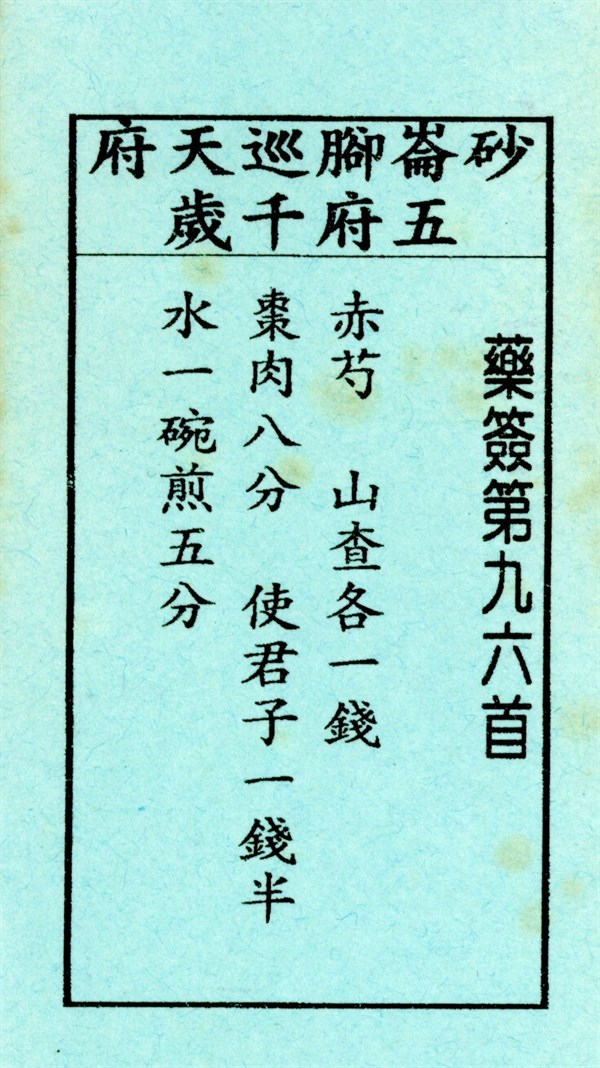 砂崙腳巡天府
五府千歲
藥簽第九六首
赤芍 山查各一錢
棗肉八分 使君子一錢半
水一碗煎五分